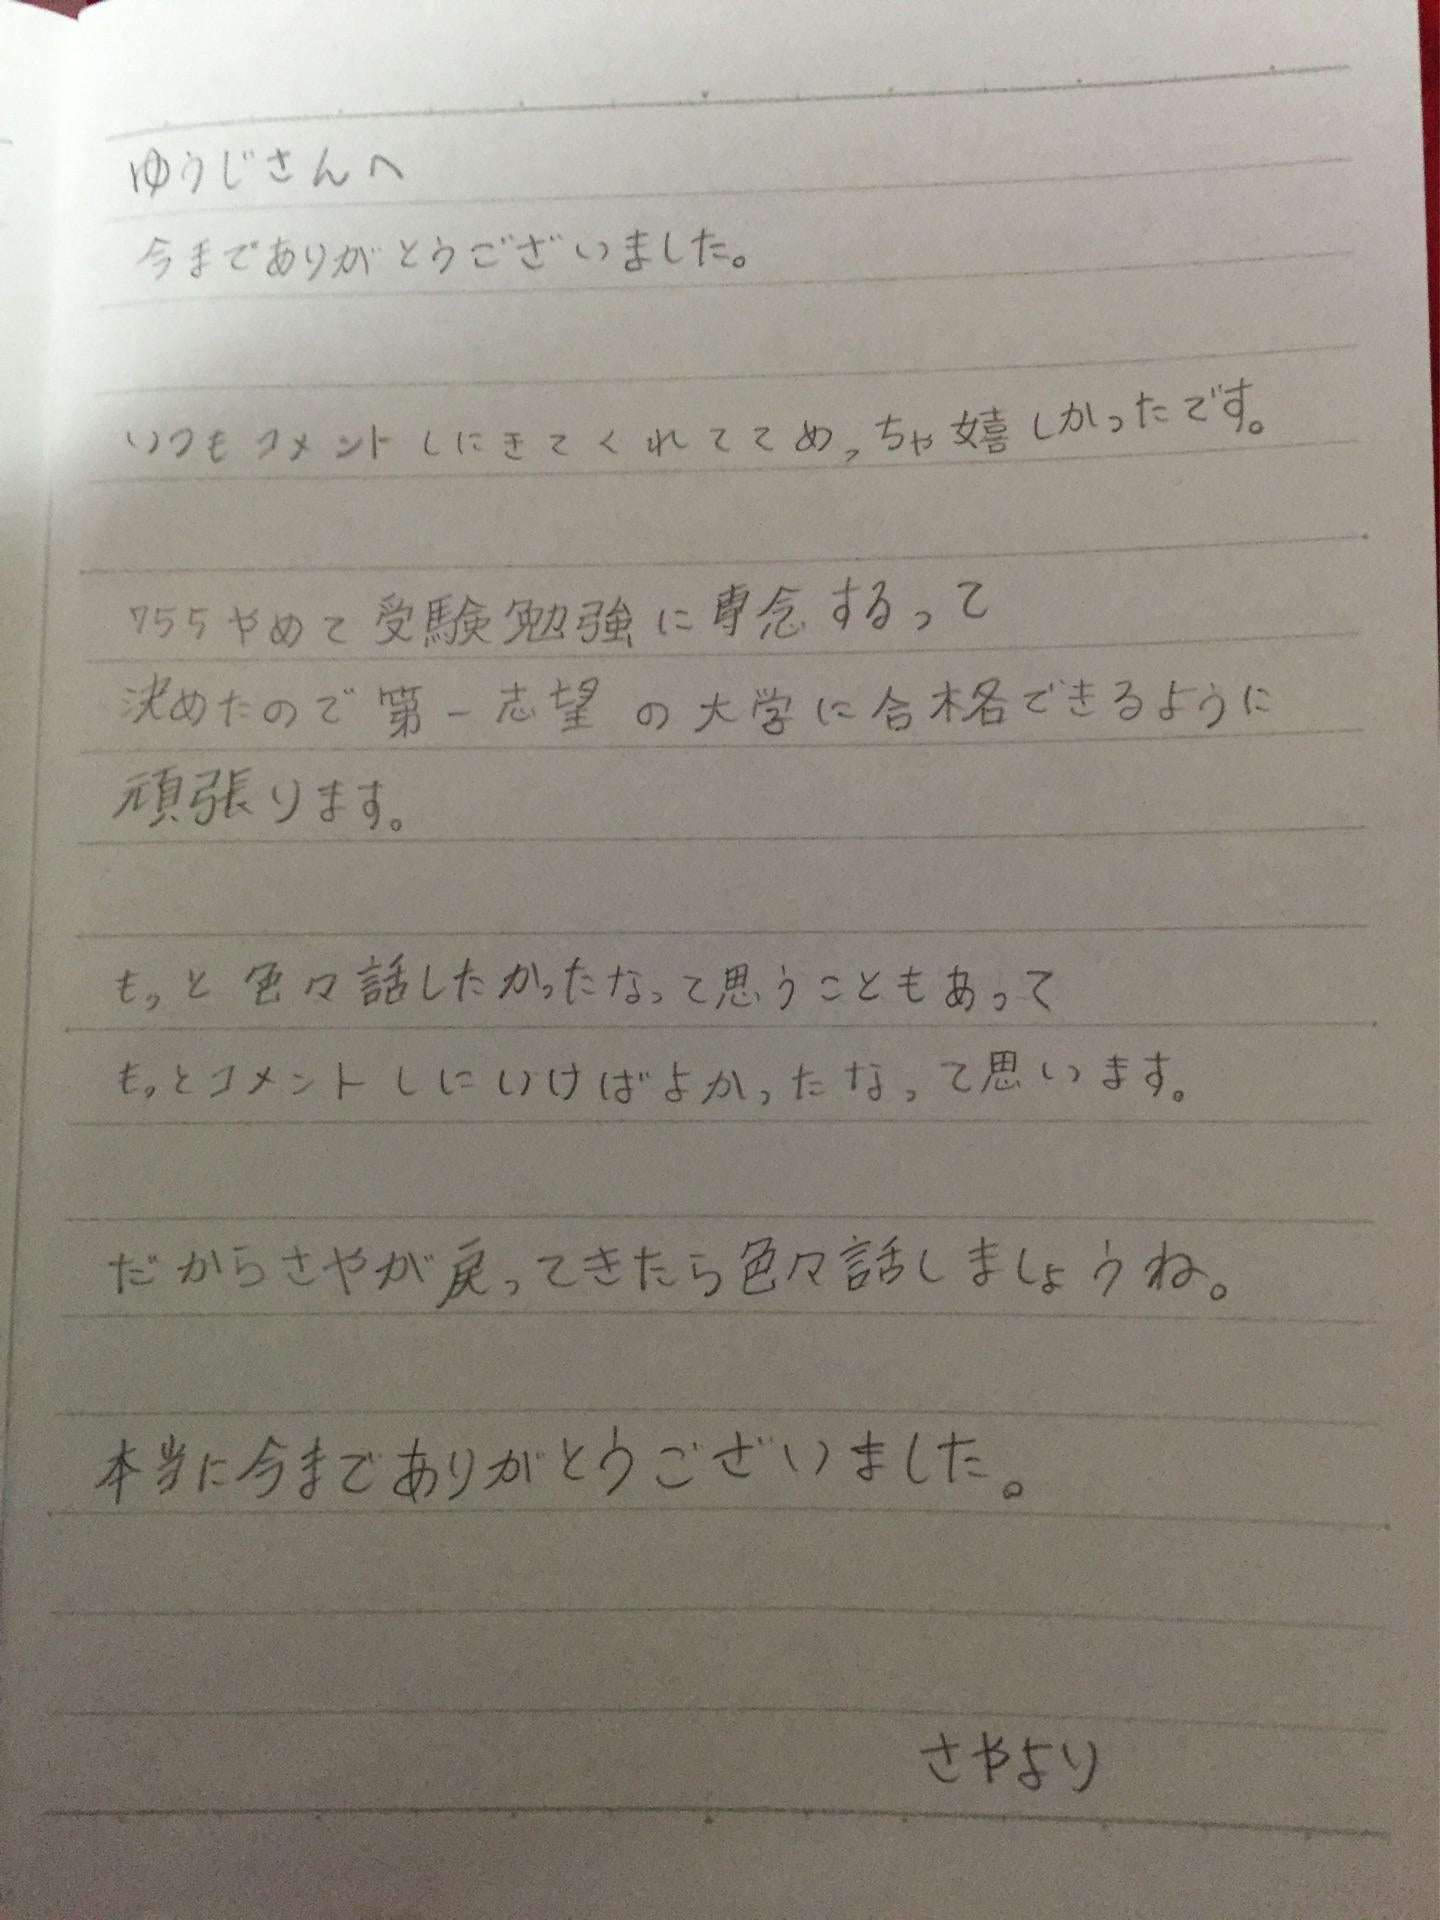 ゆうじさんへ
今までありがとうございました。
いつもコメントしにきてくれててめっちゃ嬉しかったです。
755やめて受験勉強に専念するって
決めたので第一志望の大学に合格できるように
頑張ります。
もっと色々話したかったなって思うこともあって
もっとコメントしにいけばよかったなって思います。
だからさやが戻ってきたら色々話しましょうね。
本当に今までありがとうございました。
さやより